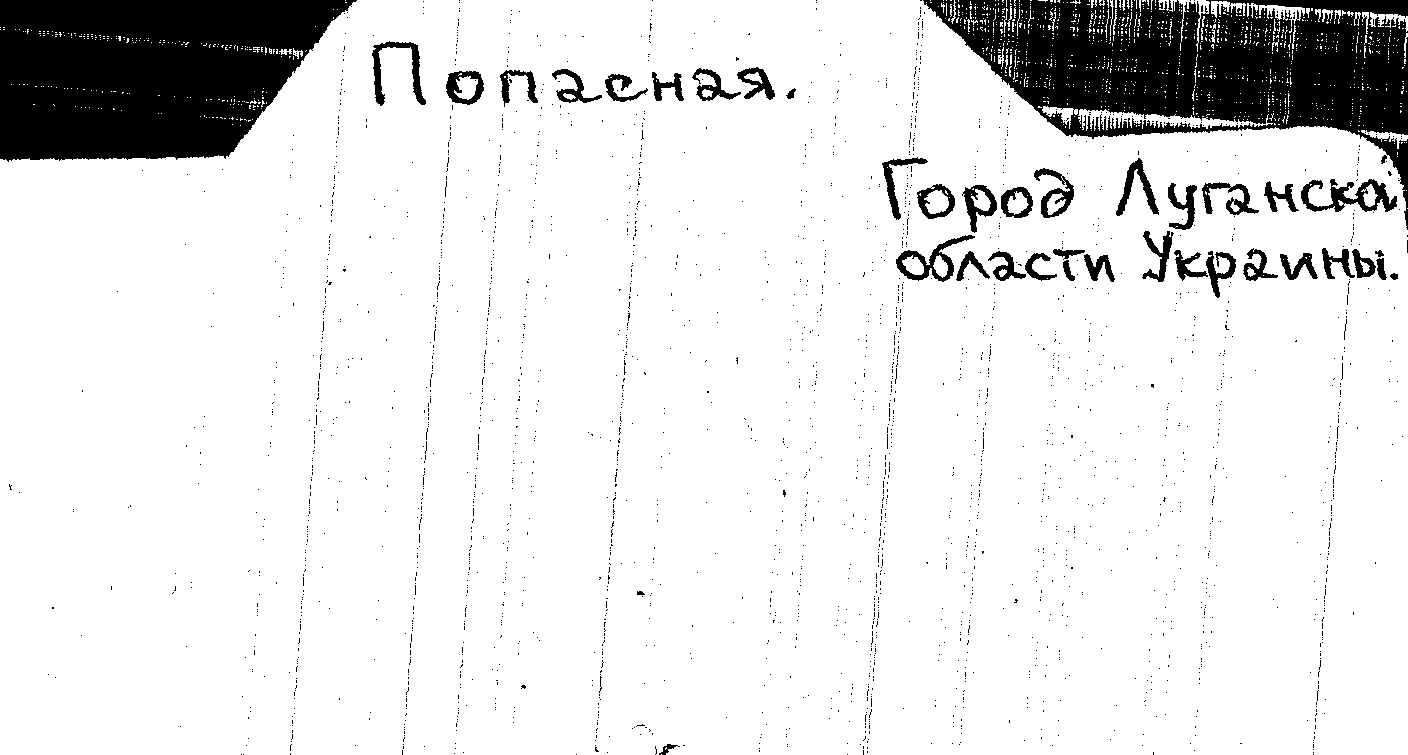 Попасная.
Город Луганска
области Украины.